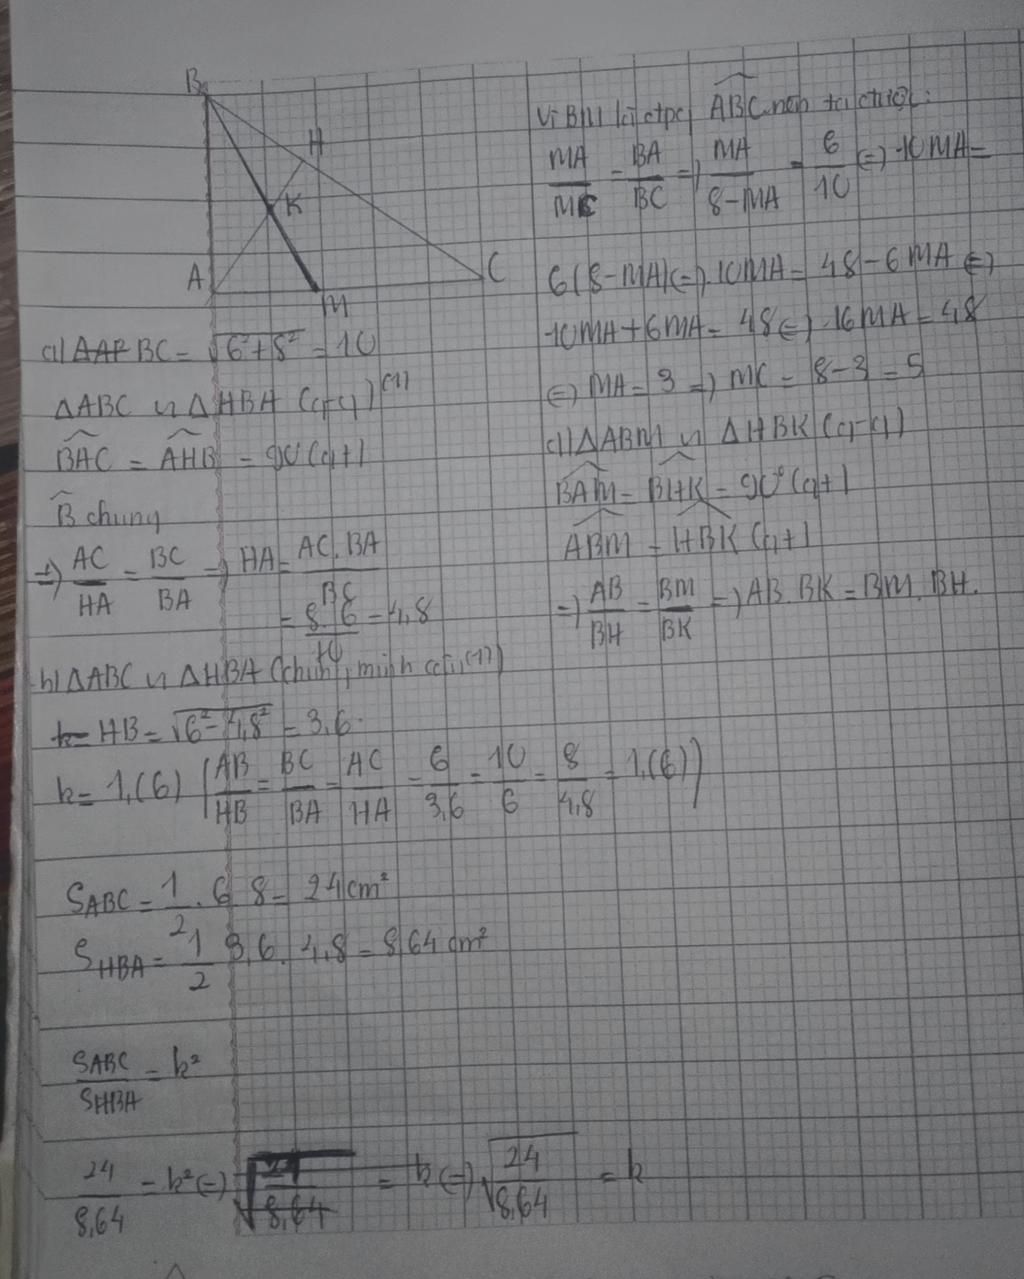 B
H
K
A
C
M
a) BC = √6²+8² = 10
ΔABC ∽ ΔHBA (g-g) (1)
BAC = AHB = 90° (gt)
B chung
=> AC/HA = BC/BA => HA = AC.BA/BC
= 8.6/10 = 4,8
b) ΔABC ∽ ΔHBA (chứng minh câu (1))
HB = √6²-4,8² = 3,6.
k = 1,(6) (AB/HB = BC/BA = AC/HA = 6/3,6 = 10/6 = 8/4,8 = 1,(6))
SABC = 1/2 . 6 8 = 24 cm²
SHBA = 1/2 3,6. 4,8 = 8,64 cm²
SABC/SHBA = k²
24/8,64 = k² <=> √24/8,64 = k <=> √24/8,64 = k
Vì BM là đtpg ABC nên ta được:
MA/MC = BA/BC => MA/8-MA = 6/10 <=> 10MA =
6(8-MA) <=> 10MA = 48-6MA <=>
10MA+6MA = 48 <=> 16MA = 48
<=> MA = 3 => MC = 8-3 = 5
d) ΔABM ∽ ΔHBK (g-g)
BAM = BHK = 90° (gt)
ABM = HBK (gt)
=> AB/BH = BM/BK => AB.BK = BM.BH.